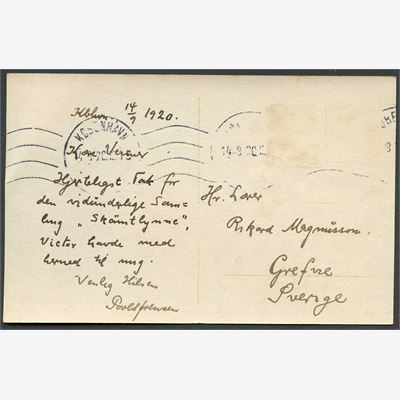 Kbhvn. 14/9 1920.
KØBENHAVN
Kære Verner
Hjerteligst Tak for
den vidunderlige Sam-
ling „Skämtlynne",
Victor havde med
herned til mig.
Venlig Hilsen
14-9.20.
Hr. Lærer
Rikard Magnusson.
Grefvie
Sverige